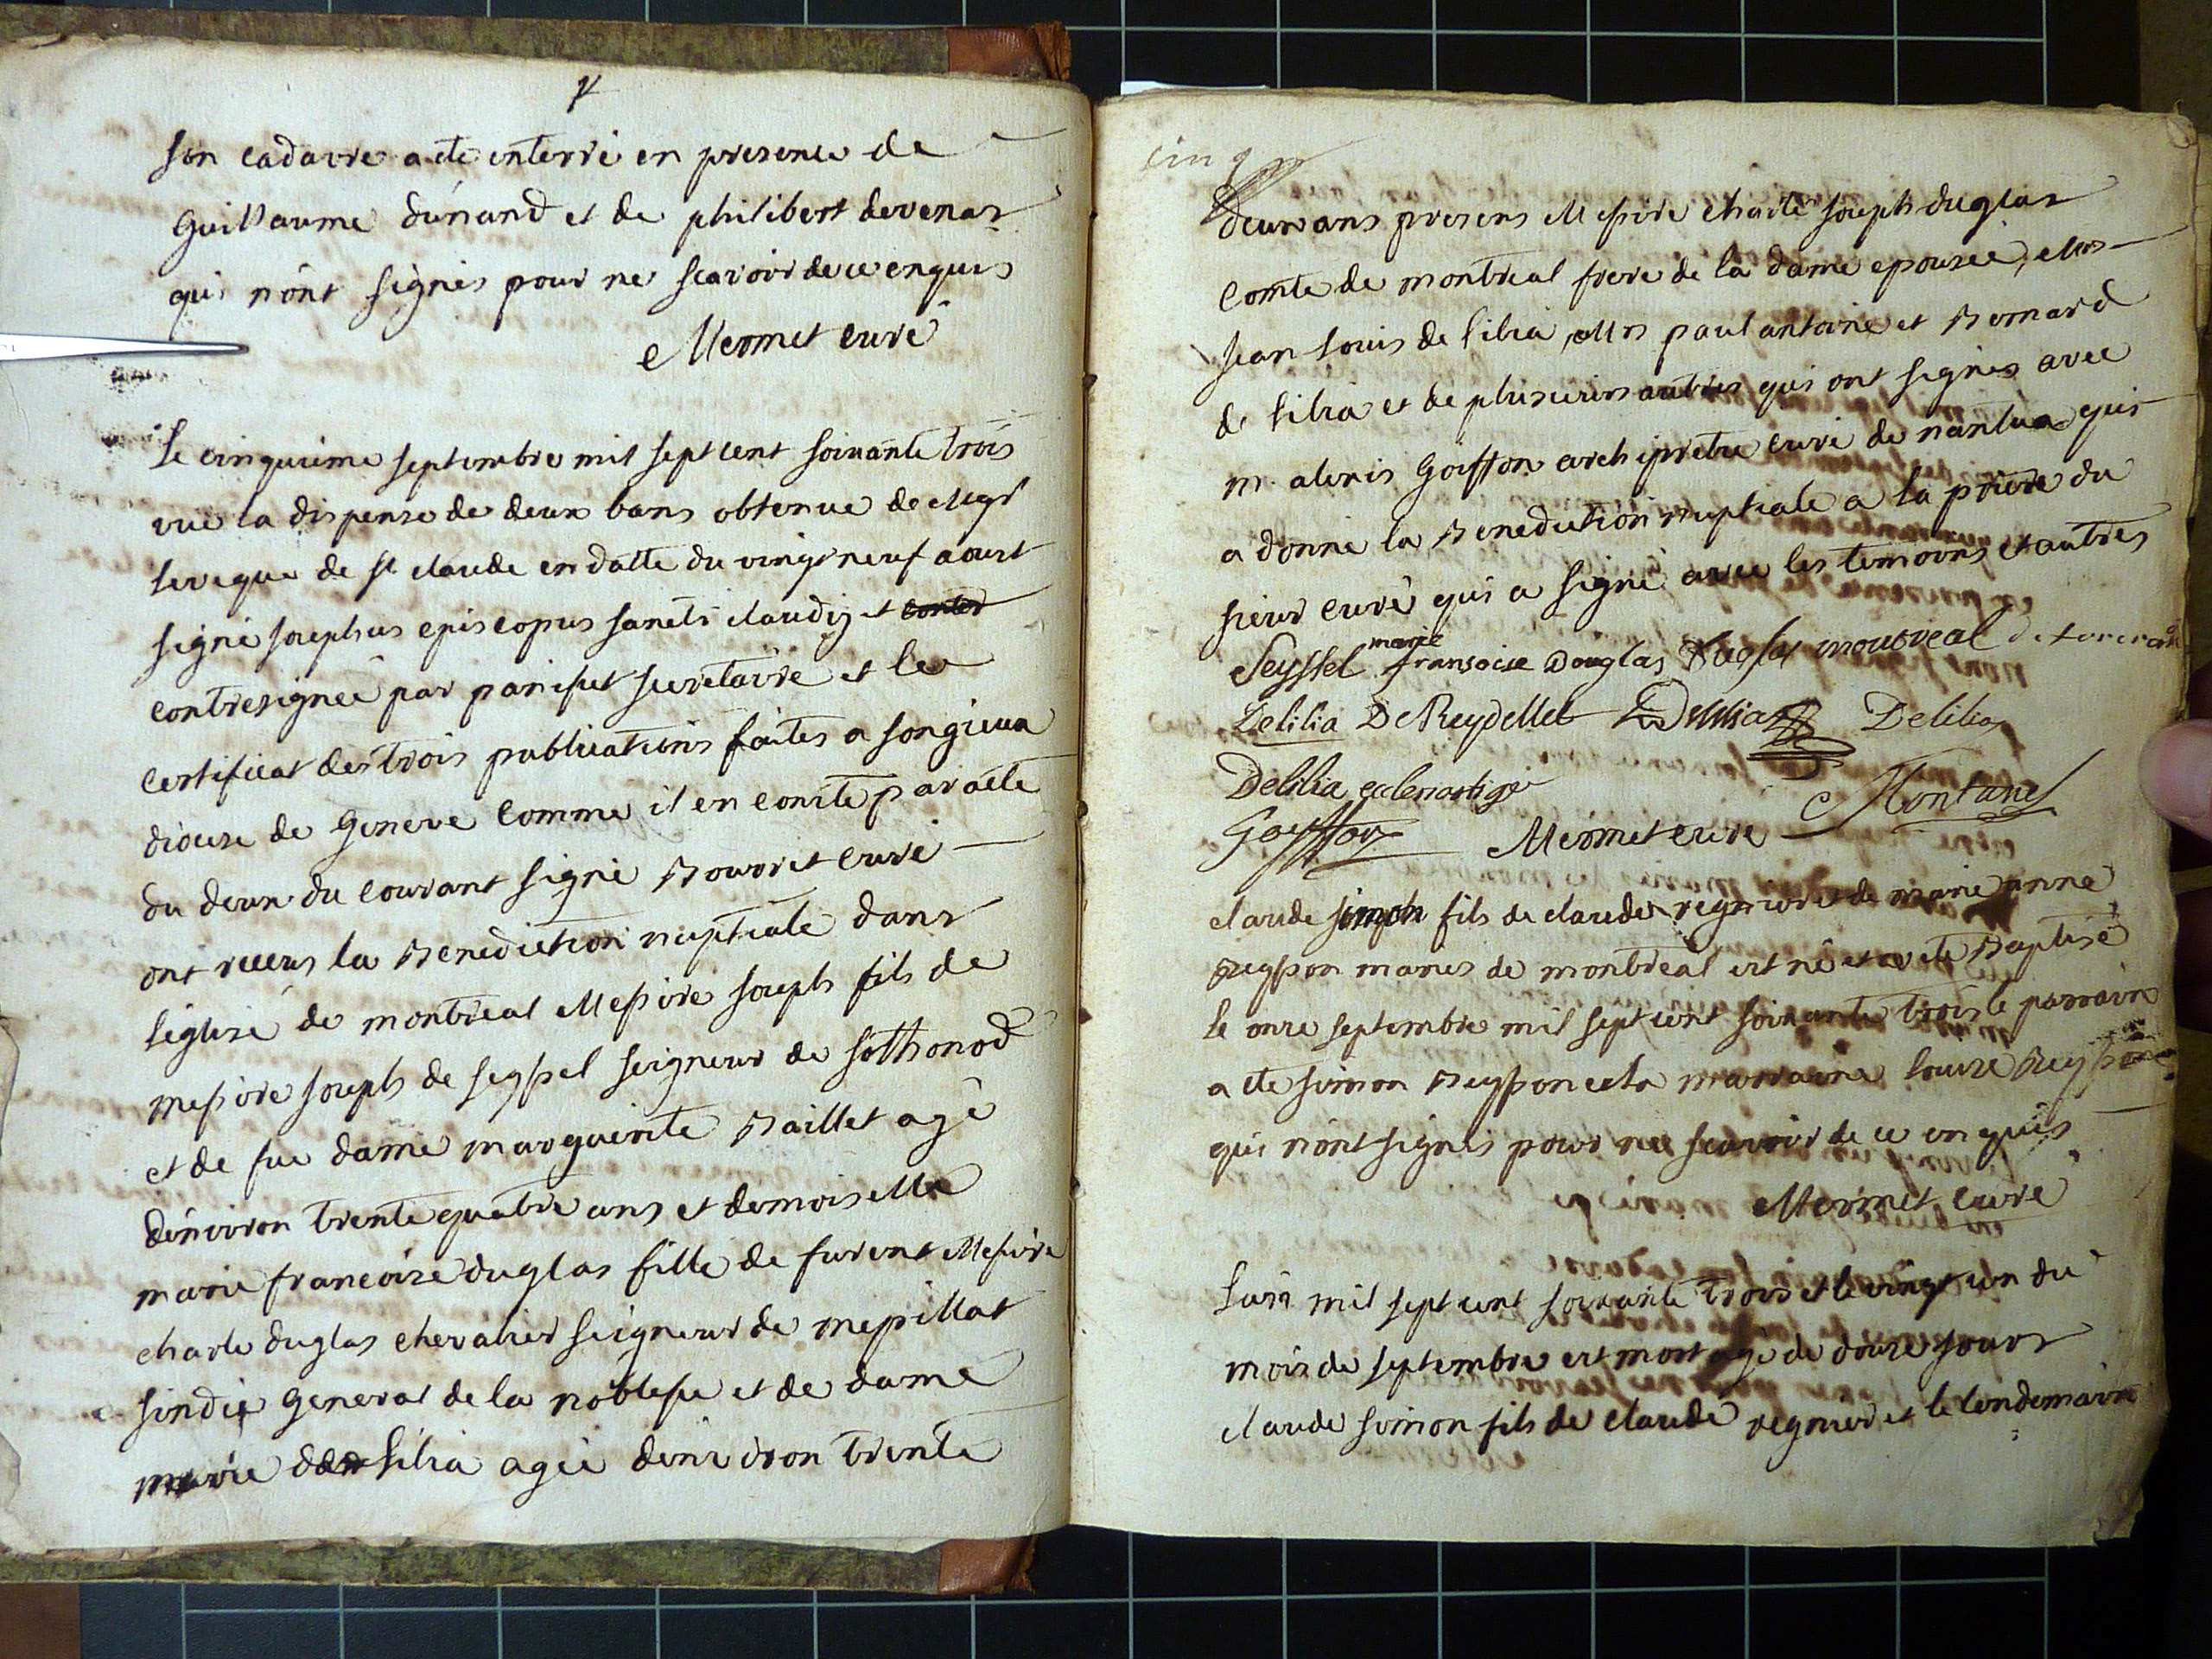 son cadavre a ete enterré en presence de
Guillaume dunand et de philibert devenas
qui nont signés pour ne scavoir de ce enquis
Mermet curé
Le cinquieme septembre mil sept cent soixante trois
vue la dispense de deux bans obtenue de Mgr
leveque de st claude en datte du vingt neuf aoust
signé josephus episcopus sancti claudij et
contresigneé par panisset secretaire et le
certificat des trois publications faites a songieux
diocese de Geneve comme il en conste par acte
du deux du courant signé Bourret curé
ont recus la Benediction nuptiale dans
leglise de montreal Messire joseph fils de
messire joseph de seyssel seigneur de sothonod
et de fue dame marguerite Baillet agé
denviron trente quatre ans et demoiselle
marie francoise duglas fille de furent Messire
charle duglas chevalier seigneur de mepillat
sindic general de la noblesse et de dame
marie de lilia agée denviron trente
cinq
deux ans presens Messire charle joseph duglas
comte de montreal frere de la dame epouseé, Mrs
jean louis de lilia, Mrs paul antoine et Bernard
de lilia et de plusieurs autres qui ont signés avec
m. alexis Goiffon archipretre curé de nantua qui
a donné la Benediction nuptiale a la priere du
sieur curé qui a signé avec les temoins et autres
Seyssel marie fransoise Douglas Duglas montreal
Delilia De Reydellet Delilia Delilia
Delilia eclesiastiqe
Goiffon Mermet curé Montanes
claude simon fils de claude regnier et de marie anne
Reypon mariés de montreal est né et a ete Baptisé
le onze septembre mil sept cent soixante trois le parrain
a ete simon Reypon et la marraine louise Reypon
qui nont signés pour ne scavoir de ce enquis
Mermet curé
Lan mil sept cent soixante trois et le vingt un du
mois de septembre est mort agé de douze jours
claude simon fils de claude regnier et le lendemain